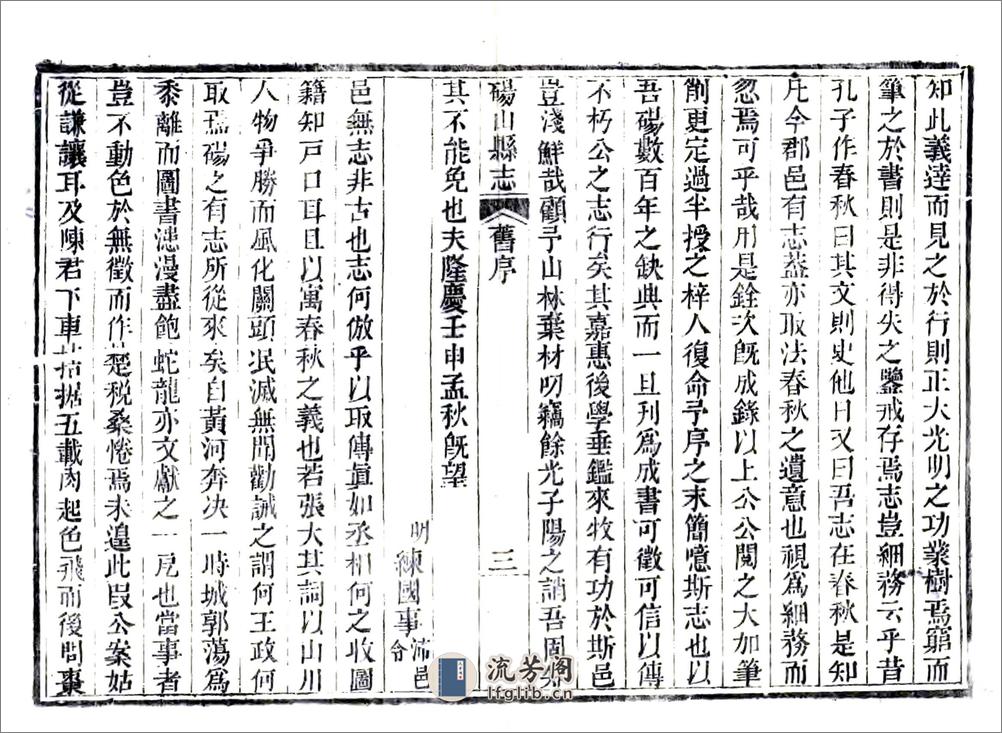 知此義達而見之於行則正大光明之功業樹焉窮而
筆之於書則是非得失之鑒戒存焉志豈細務云乎昔
孔子作春秋曰其文則史他日又曰吾志在春秋是知
凡今郡邑有志葢亦取法春秋之遺意也視為細務而
忽焉可乎哉用是銓次既成錄以上公公閱之大加筆
削更定過半授之梓人復命予序之末簡噫斯志也以
吾碭數百年之缺典而一旦刋為成書可徵可信以傳
不朽公之志行矣其嘉惠後學垂鑑來牧有功於斯邑
豈淺鮮哉顧予山林棄材叨竊餘光子陽之誚吾固知
碭山縣志 舊序 三
其不能免也夫隆慶壬申孟秋既望
明練國事沛邑令
邑無志非古也志何倣乎以取傳眞如丞相何之收圖
籍知戸口耳且以寓春秋之義也若張大其詞以山川
人物爭勝而風化關頭泯滅無聞勸誡之謂何王政何
取焉碭之有志所從來矣自黃河奔决一時城郭蕩為
黍離而圖書漶漫盡飽蛇龍亦文獻之一厄也當事者
豈不動色於無徵而作楚税桑惓焉未遑此叚公案姑
從謙讓耳及陳君下車拮据五載肉起色飛而後問棗
流芳阁
lfglib.cn